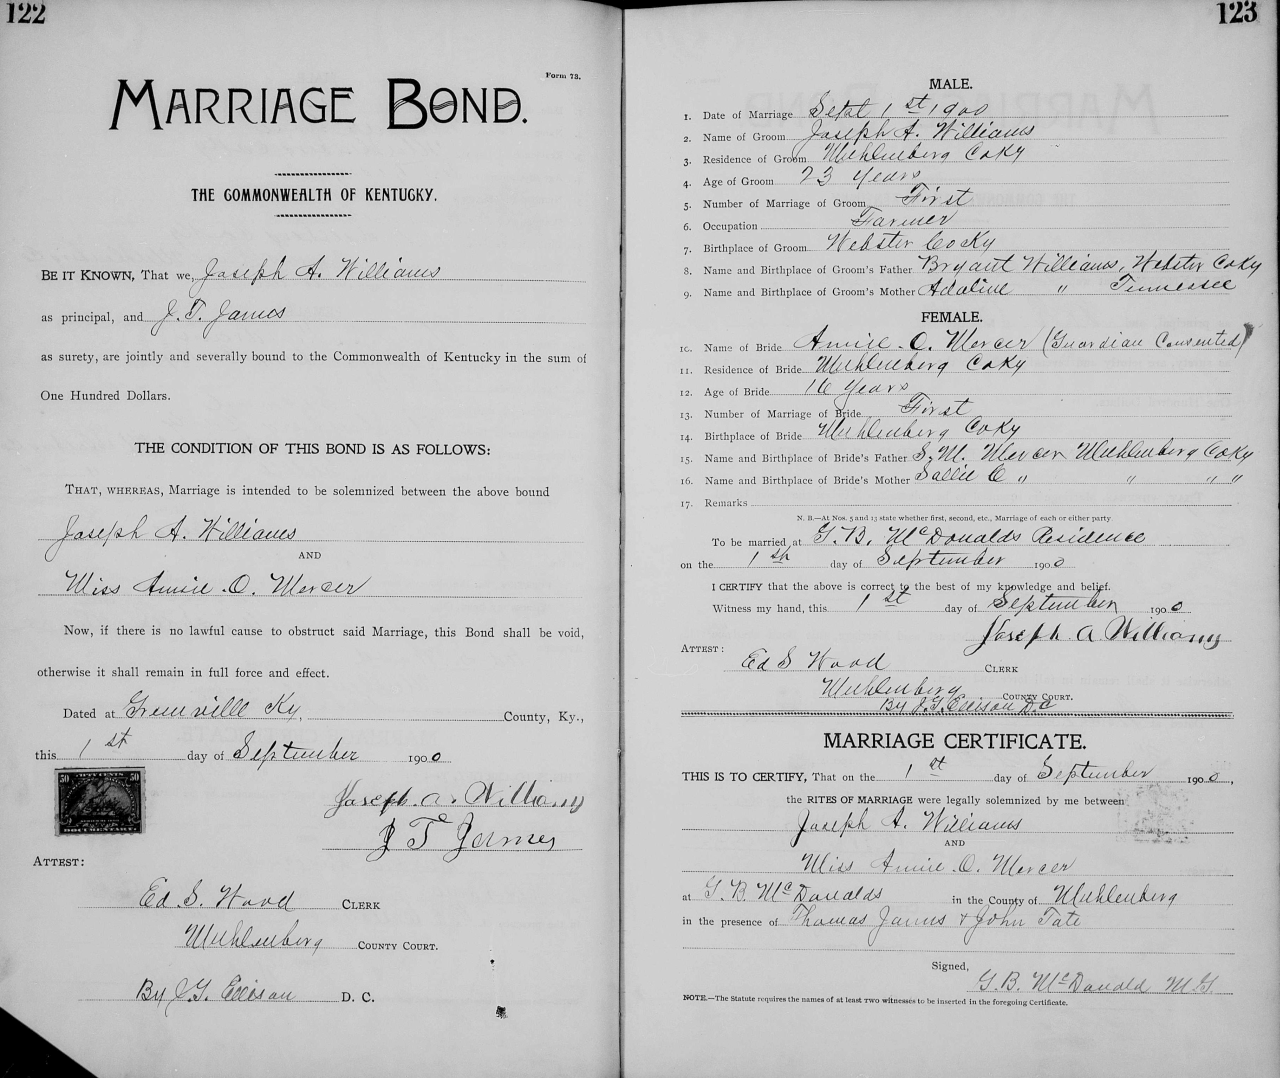 122
Form 73.
MARRIAGE BOND.
THE COMMONWEALTH OF KENTUCKY.
BE IT KNOWN, That we, Joseph A. Williams
as principal, and J. T. James
as surety, are jointly and severally bound to the Commonwealth of Kentucky in the sum of
One Hundred Dollars.
THE CONDITION OF THIS BOND IS AS FOLLOWS:
THAT, WHEREAS, Marriage is intended to be solemnized between the above bound
Joseph A. Williams
AND
Miss Annie O. Mercer
Now, if there is no lawful cause to obstruct said Marriage, this Bond shall be void,
otherwise it shall remain in full force and effect.
Dated at Greenville Ky, County, Ky.,
this 1st day of September 1900
50 FIFTY CENTS 50
DOCUMENTARY.
Joseph. A. Williams
J T James
ATTEST:
Ed. S. Wood CLERK
Muhlenberg COUNTY COURT.
By J. G. Ellison D. C.
123
MALE.
1. Date of Marriage Sept 1st 1900
2. Name of Groom Joseph A. Williams
3. Residence of Groom Muhlenberg Co Ky
4. Age of Groom 23 years
5. Number of Marriage of Groom First
6. Occupation Farmer
7. Birthplace of Groom Webster Co Ky
8. Name and Birthplace of Groom's Father Bryant Williams, Webster Co Ky
9. Name and Birthplace of Groom's Mother Adaline " Tennessee
FEMALE.
10. Name of Bride Annie O. Mercer (Guardian Consented)
11. Residence of Bride Muhlenberg Co Ky
12. Age of Bride 16 years
13. Number of Marriage of Bride First
14. Birthplace of Bride Muhlenberg Co Ky
15. Name and Birthplace of Bride's Father S. M. Mercer Muhlenberg Co Ky
16. Name and Birthplace of Bride's Mother Sallie C " " " "
17. Remarks
N. B.—At Nos. 5 and 13 state whether first, second, etc., Marriage of each or either party.
To be married at G. B. McDonalds Residence
on the 1st day of September 1900
I CERTIFY that the above is correct to the best of my knowledge and belief.
Witness my hand, this 1st day of September 1900
Joseph. A Williams
ATTEST:
Ed S Wood CLERK
Muhlenberg COUNTY COURT.
By J. G. Ellison D.C
MARRIAGE CERTIFICATE.
THIS IS TO CERTIFY, That on the 1st day of September 1900,
the RITES OF MARRIAGE were legally solemnized by me between
Joseph A. Williams
AND
Miss Annie O. Mercer
at G. B. McDonalds in the County of Muhlenberg
in the presence of Thomas James & John Tate
Signed,
G. B. McDonald M.G.
NOTE.—The Statute requires the names of at least TWO witnesses to be inserted in the foregoing Certificate.